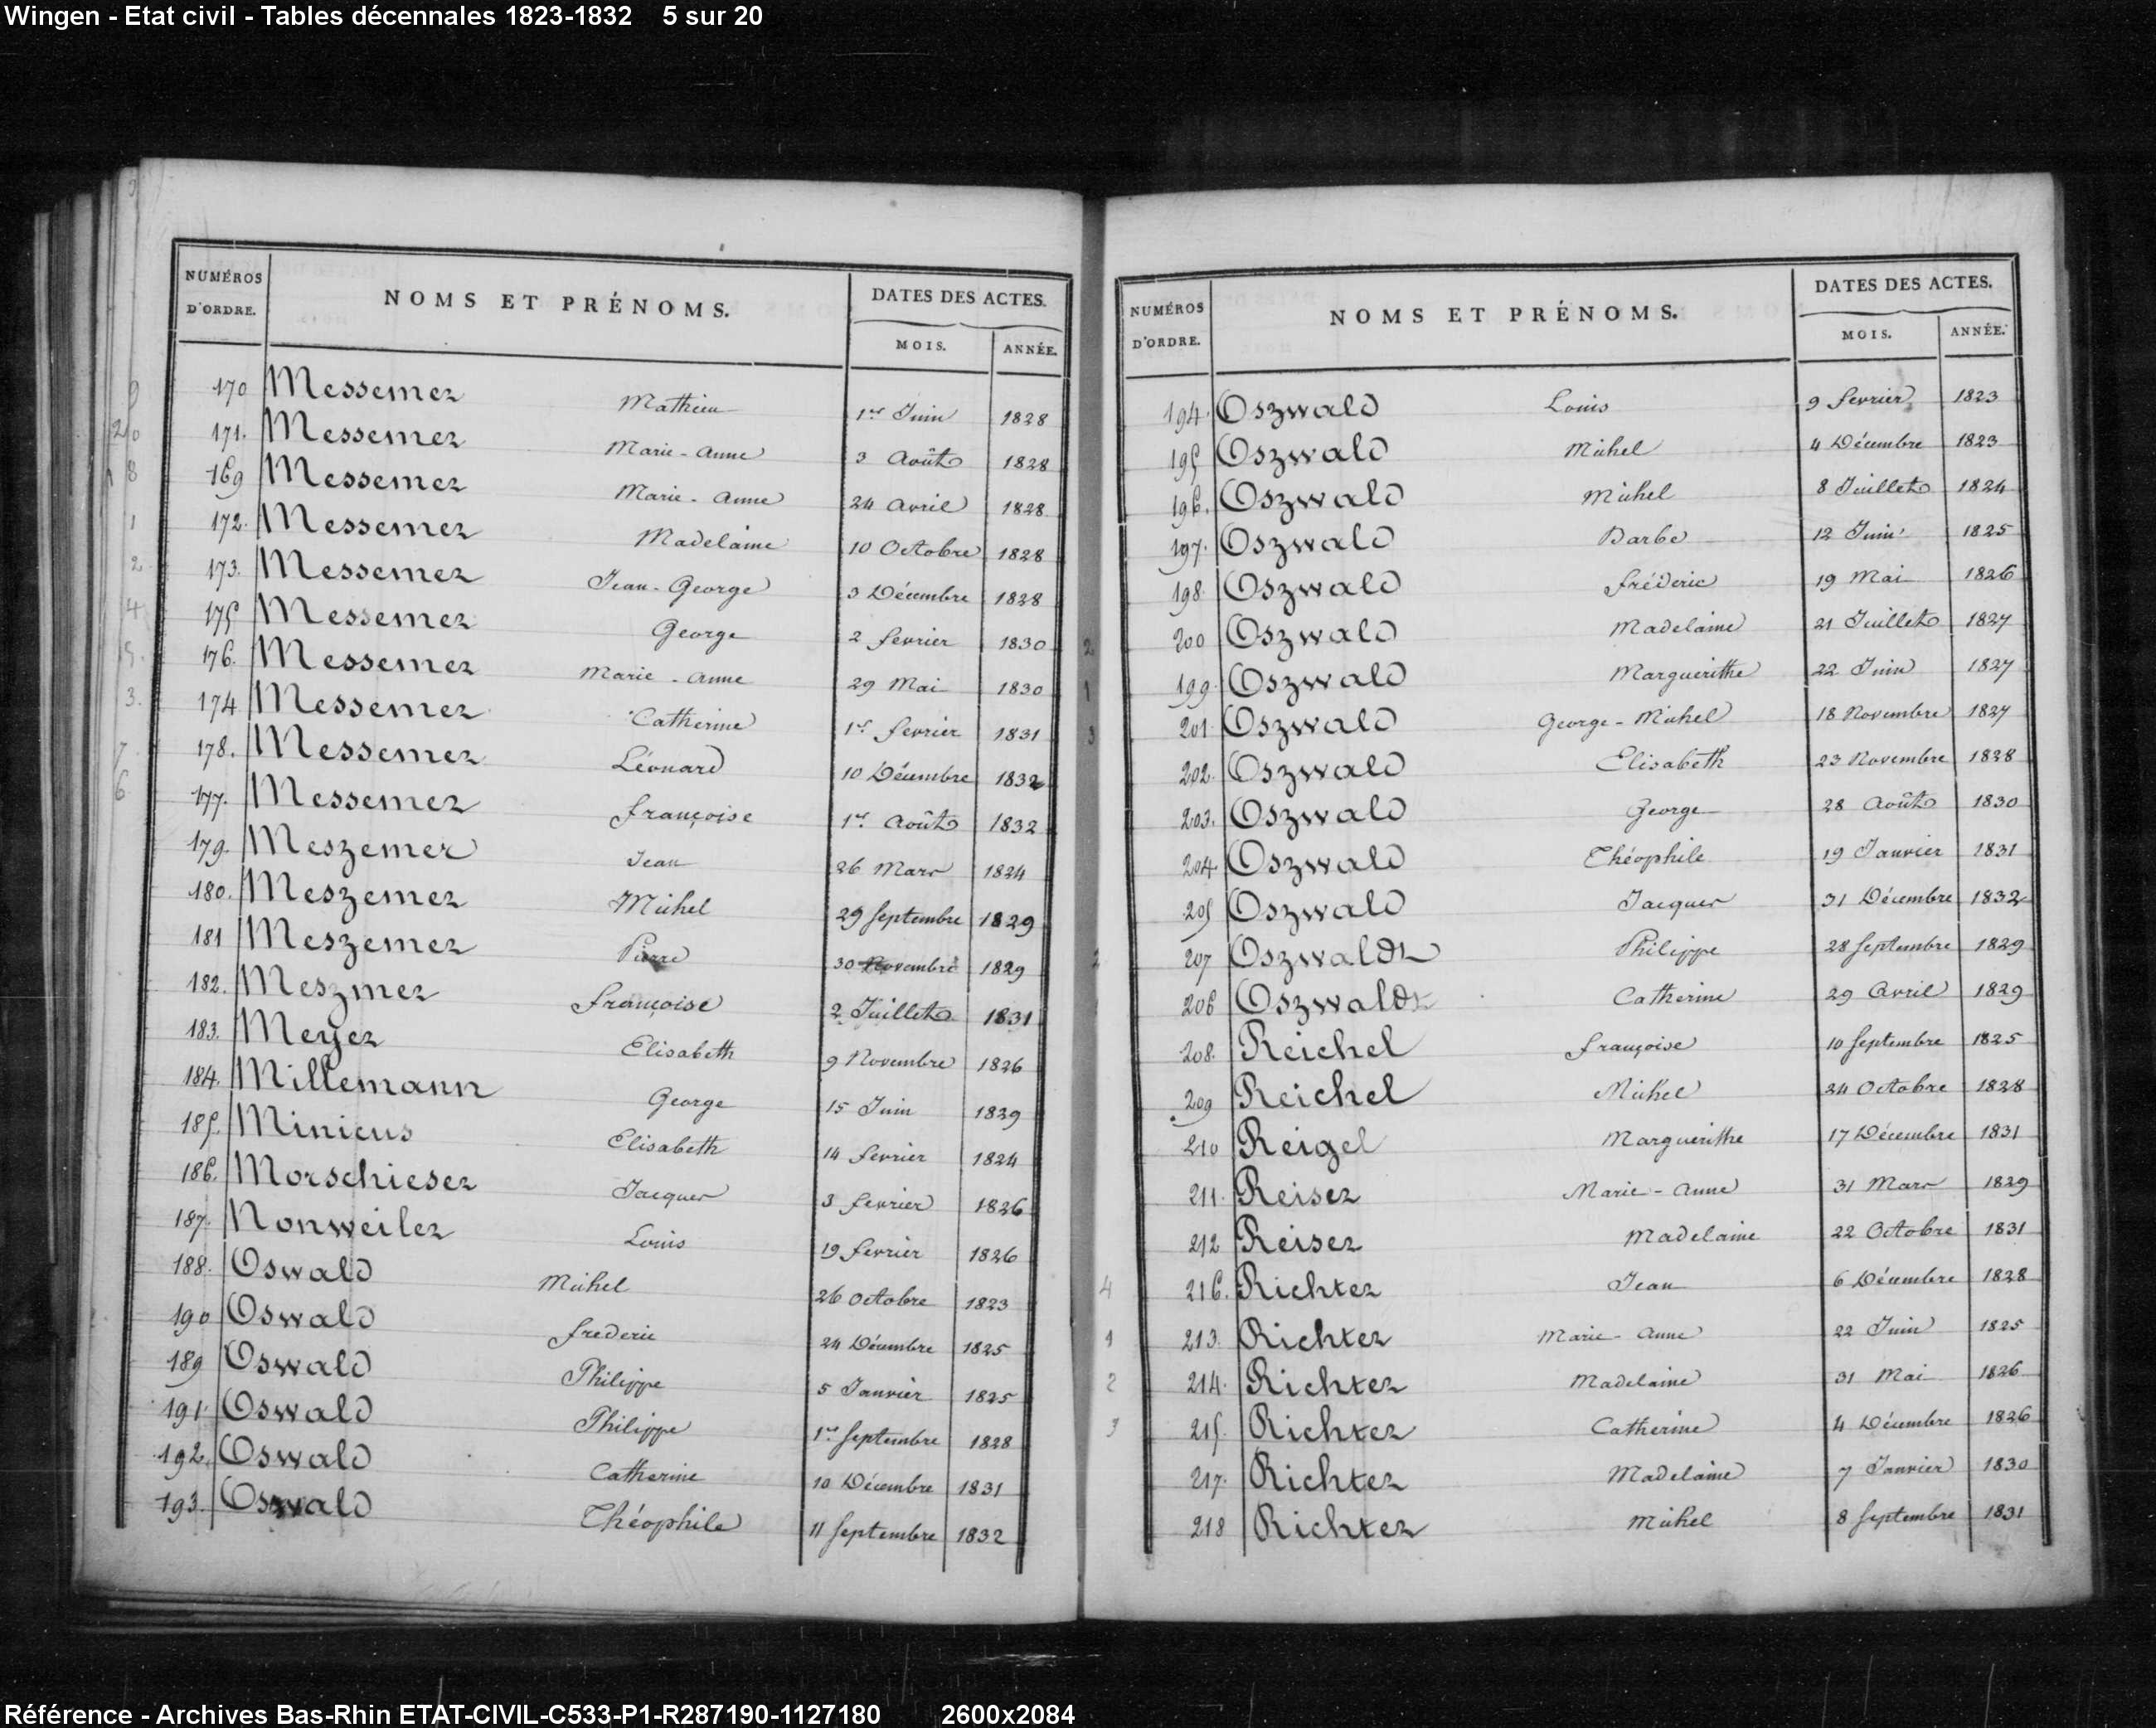 Wingen - Etat civil - Tables décennales 1823-1832 5 sur 20
NUMÉROS D'ORDRE. NOMS ET PRÉNOMS. DATES DES ACTES.
MOIS. ANNÉE.
9 170 Messemer Mathieu 1er Juin 1828
20 171. Messemer Marie-Anne 3 Août 1828
8 169 Messemer Marie-Anne 24 Avril 1828
1 172. Messemer Madelaine 10 Octobre 1828
2 173. Messemer Jean-George 3 Décembre 1828
4 175 Messemer George 2 fevrier 1830
5. 176. Messemer Marie-Anne 29 Mai 1830
3. 174 Messemer Catherine 1er fevrier 1831
7 178. Messemer Léonard 10 Décembre 1832
6 177. Messemer françoise 1er Août 1832
179. Meszemer Jean 26 Mars 1824
180. Meszemer Michel 29 Septembre 1829
181 Meszemer Pierre 30 Novembre 1829
182. Meszmer françoise 2 Juillet 1831
183. Meyer Elisabeth 9 Novembre 1826
184. Millemann George 15 Juin 1829
185. Minicus Elisabeth 14 fevrier 1824
186. Morschieser Jacques 3 fevrier 1826
187. Nonweiler Louis 19 fevrier 1826
188. Oswald Michel 26 Octobre 1823
190 Oswald frederic 24 Décembre 1825
189 Oswald Philippe 5 Janvier 1825
191 Oswald Philippe 1er Septembre 1828
192. Oswald Catherine 10 Décembre 1831
193. Oswald Théophile 11 Septembre 1832
NUMÉROS D'ORDRE. NOMS ET PRÉNOMS. DATES DES ACTES.
MOIS. ANNÉE.
194. Oszwald Louis 9 fevrier 1823
195 Oszwald Michel 4 Décembre 1823
196. Oszwald Michel 8 Juillet 1824
197. Oszwald Barbe 12 Juin 1825
198 Oszwald fréderic 19 Mai 1826
2 200 Oszwald Madelaine 21 Juillet 1827
1 199. Oszwald Marguerithe 22 Juin 1827
3 201. Oszwald George-Michel 18 Novembre 1827
202. Oszwald Elisabeth 23 Novembre 1828
203. Oszwald George 28 Août 1830
204. Oszwald Théophile 19 Janvier 1831
205 Oszwald Jacques 31 Décembre 1832
2 207 Oszwaldt Philippe 28 Septembre 1829
206 Oszwaldt Catherine 29 Avril 1829
208. Reichel françoise 10 Septembre 1825
209 Reichel Michel 24 Octobre 1828
210 Reigel Marguerithe 17 Décembre 1831
211. Reiser Marie-Anne 31 Mars 1829
212 Reiser Madelaine 22 Octobre 1831
4 216. Richter Jean 6 Décembre 1828
1 213. Richter Marie-Anne 22 Juin 1825
2 214. Richter Madelaine 31 Mai 1826
3 215. Richter Catherine 4 Décembre 1826
217. Richter Madelaine 7 Janvier 1830
218 Richter Michel 8 Septembre 1831
Référence - Archives Bas-Rhin ETAT-CIVIL-C533-P1-R287190-1127180 2600x2084